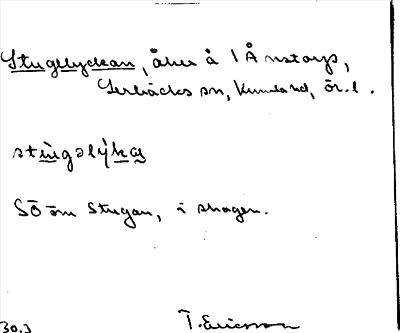 Stugelyckan, åker å 1 Å nstorp,
Lerbäcks sn, Kumland, ör. l.
stùgəlỳkạ
SÖ om Stugan, i skogen.
30.3 T. Ericsson